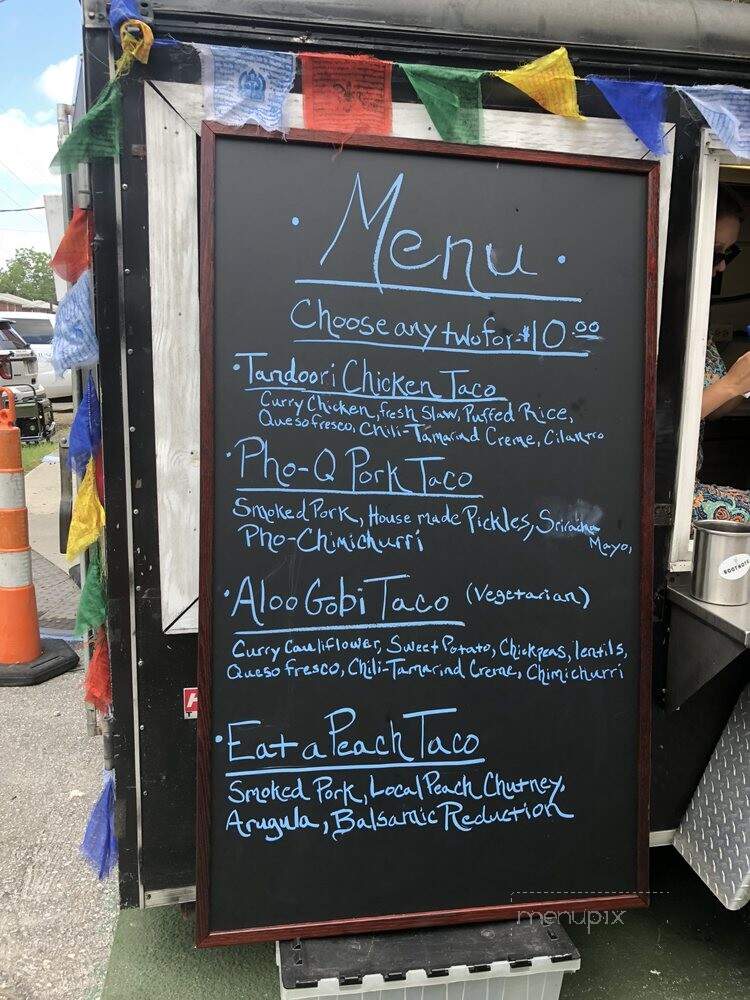 · Menu ·
Choose any two for $10.00
· Tandoori Chicken Taco
Curry Chicken, fresh Slaw, Puffed Rice,
Queso fresco, Chili-Tamarind Creme, Cilantro
· Pho-Q Pork Taco
Smoked Pork, House made Pickles, Sriracha Mayo,
Pho-Chimichurri
· Aloo Gobi Taco (Vegetarian)
Curry Cauliflower, Sweet Potato, Chickpeas, lentils,
Queso fresco, Chili-Tamarind Creme, Chimichurri
· Eat a Peach Taco
Smoked Pork, Local Peach Chutney,
Arugula, Balsamic Reduction
menupix